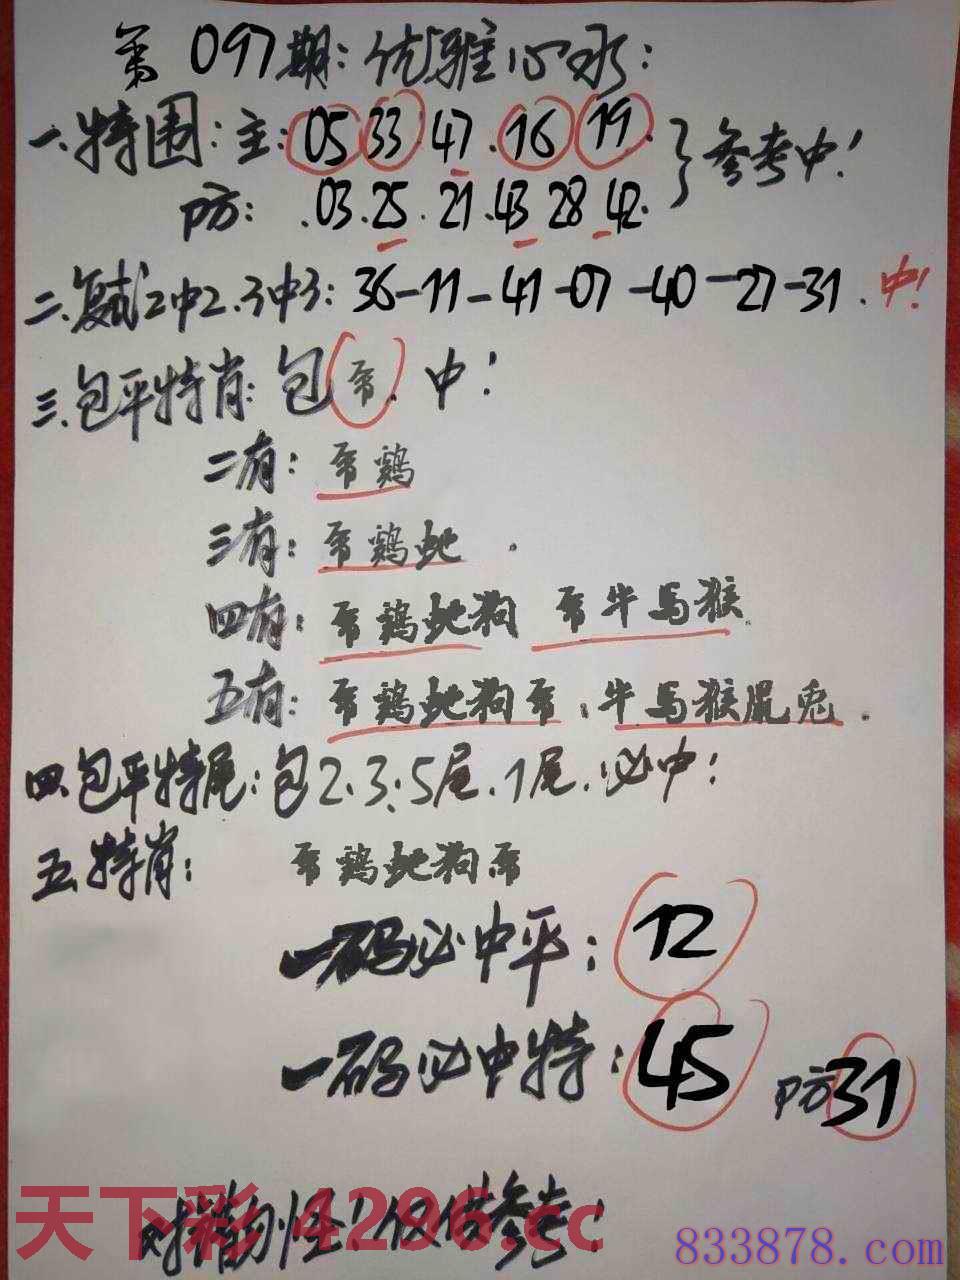 第097期:优雅心水:
一.特围:主:05 33 47.16 19. }参考中!
防: .03.25.21.43 28 42.
二.复试2中2.3中3:36-11-41-07-40-27-31.中!
三.包平特肖:包 . 中!
二有: 鸡
三有: 鸡蛇 .
四有: 鸡蛇狗 牛马猴.
五有: 鸡蛇狗 .牛马猴鼠兔.
四.包平特尾:包2.3.5尾.1尾.必中!
五.特肖: 鸡蛇狗
一码必中平:12
一码必中特:45 防31
天下彩 4296.cc
猜 怪!仅供参考!
833878.com